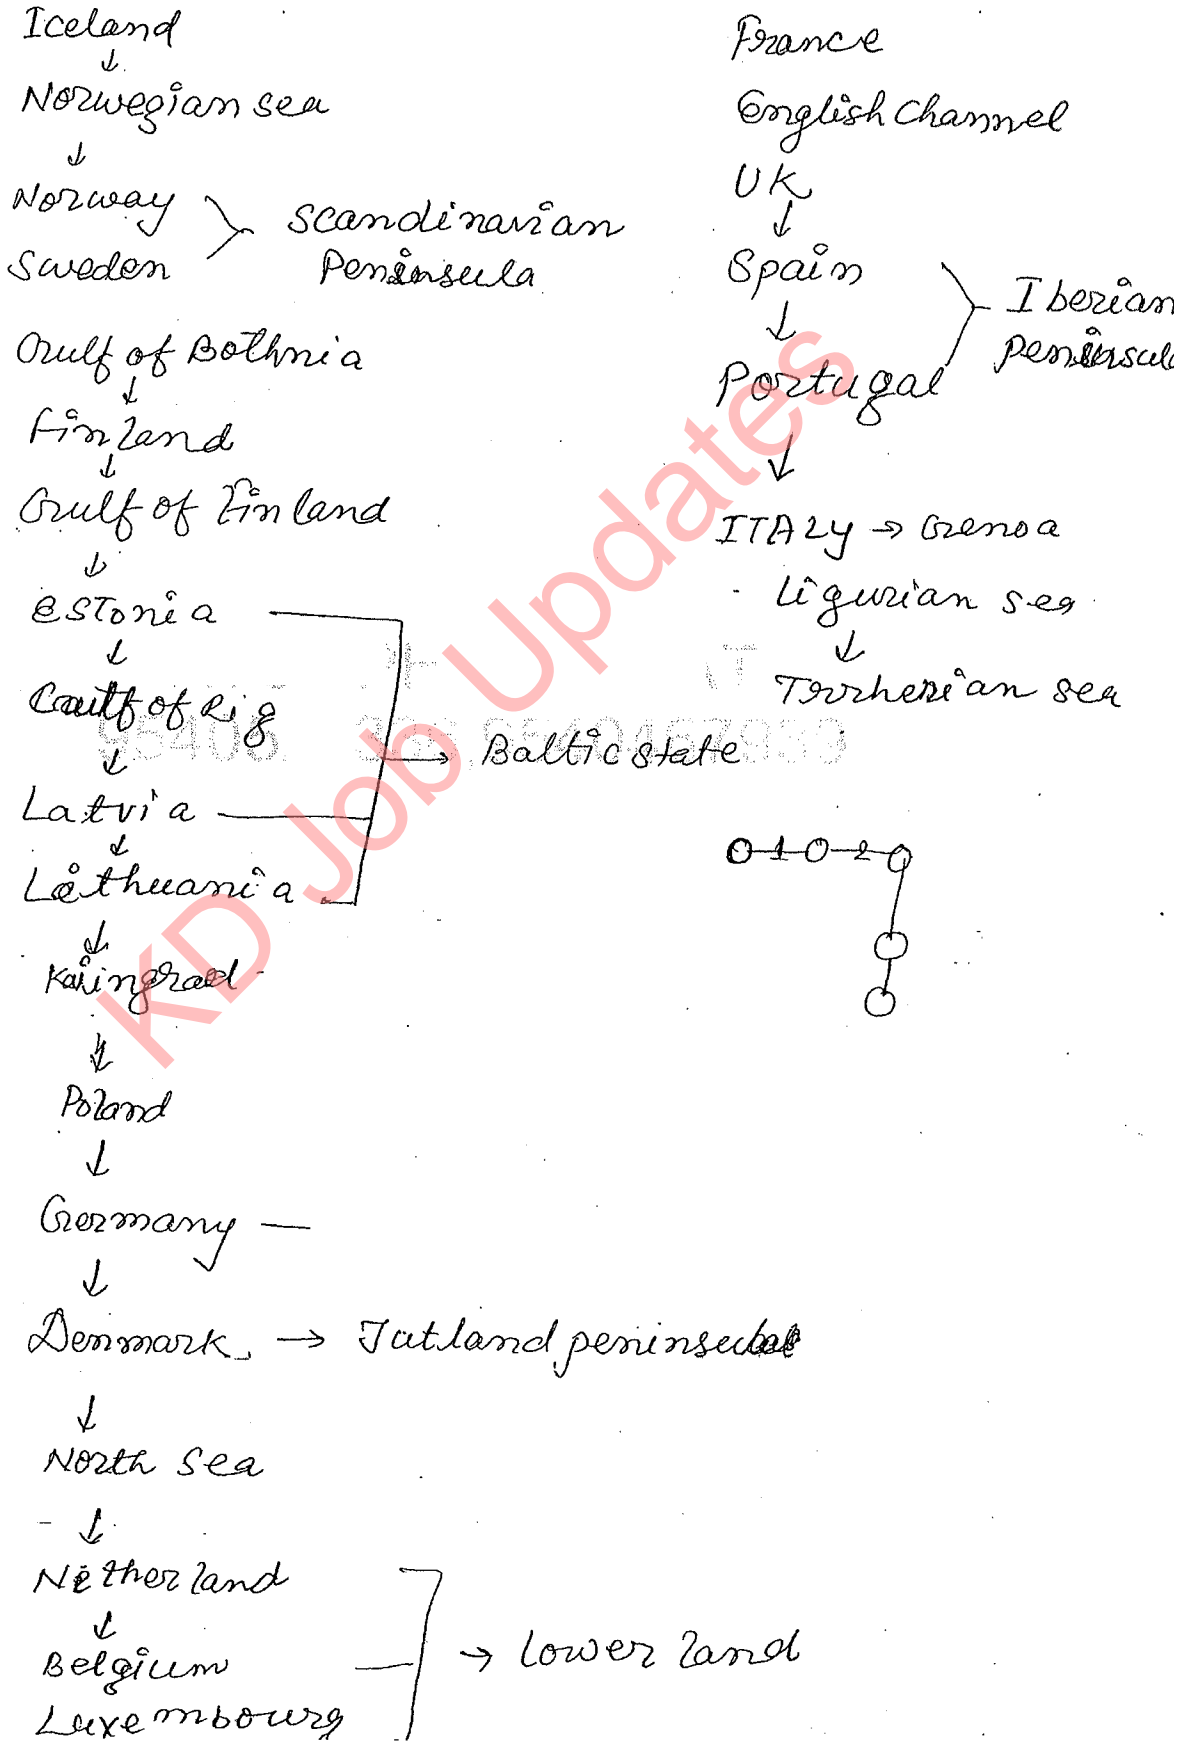 Iceland
↓
Norwegian sea
↓
Norway
Sweden
Scandinavian
Peninsula
Gulf of Bothnia
↓
Finland
↓
Gulf of Finland
↓
estonia
↓
Gulf of Rig
↓
Latvia
↓
Lithuania
→ Baltic state
↓
Kaliningrad
↓
Poland
↓
Germany —
↓
Denmark → Jutland peninsula
↓
North Sea
↓
Netherland
↓
Belgium
Luxembourg
→ Lower land
France
English Channel
UK
↓
Spain
↓
Portugal
Iberian
peninsul
↓
ITALY → Genoa
Ligurian sea
↓
Tyrrhenian sea
0 1 0 2 0
KD Job Updates